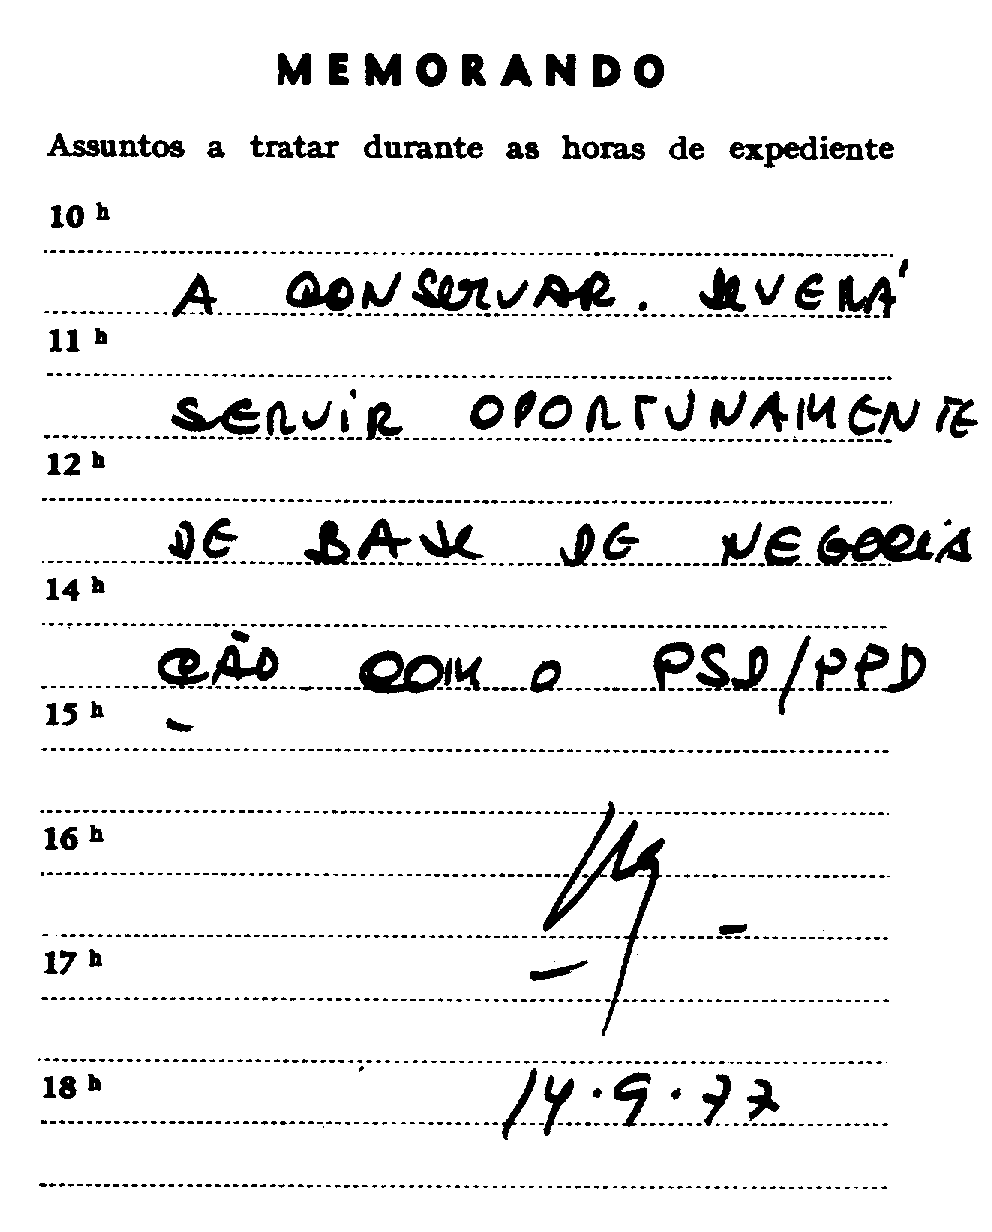 MEMORANDO
Assuntos a tratar durante as horas de expediente
10 h
A CONSERVAR. DEVERÁ
11 h
SERVIR OPORTUNAMENTE
12 h
DE BASE DE NEGOCIA
14 h
ÇÃO COM O PSD/PPD
15 h
16 h
17 h
18 h
14.9.77